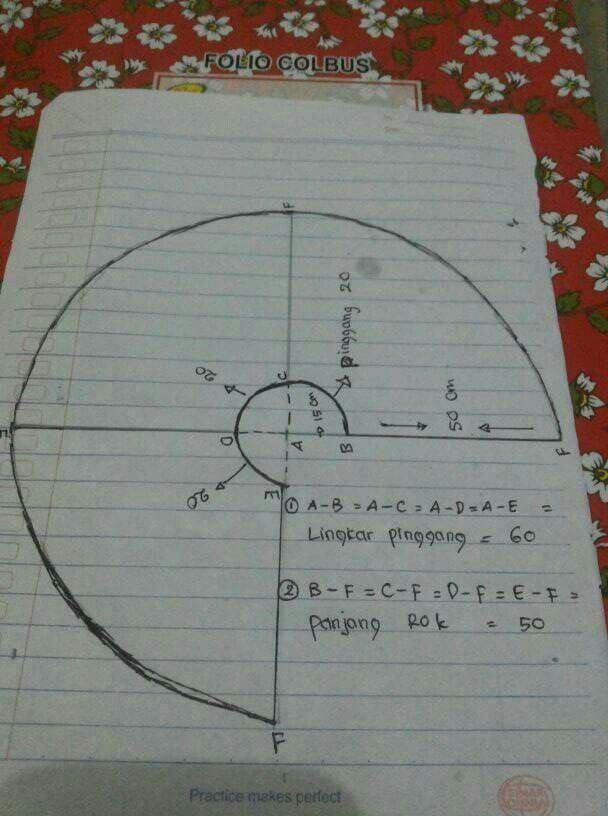 FOLIO COLBUS
F
pinggang 20
20
C
15 cm
50 cm
F
D
A
B
F
20
E
① A-B = A-C = A-D = A-E =
Lingkar pinggang = 60
② B-F = C-F = D-F = E-F =
panjang Rok = 50
F
Practice makes perfect
SINAR
DUNIA